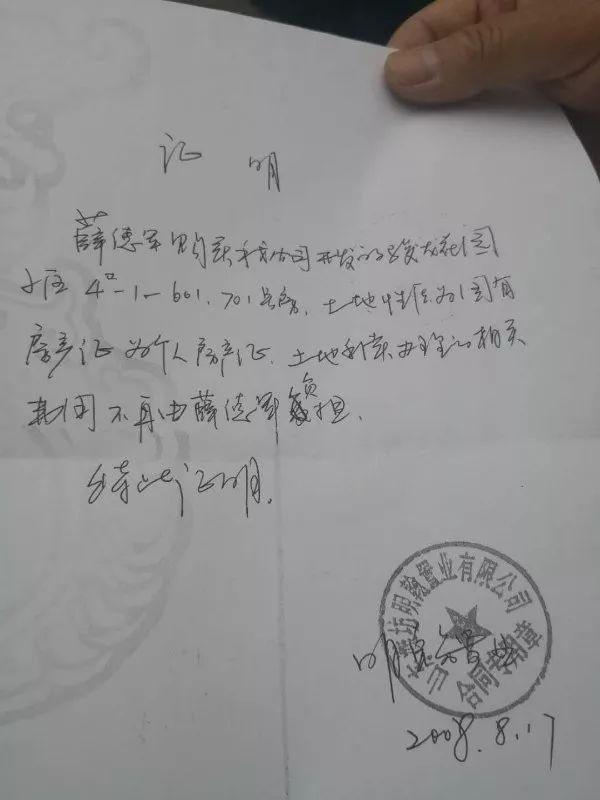 证 明
薛德军购买我公司开发的 花园
小区4#-1-601.701号房,土地性质为国有
房产证为个人房产证.土地 办理的相关
费用不再由薛德军负担.
特此证明.
坊明翰置业有限公司
合同专用章
明翰置业
2008.8.17